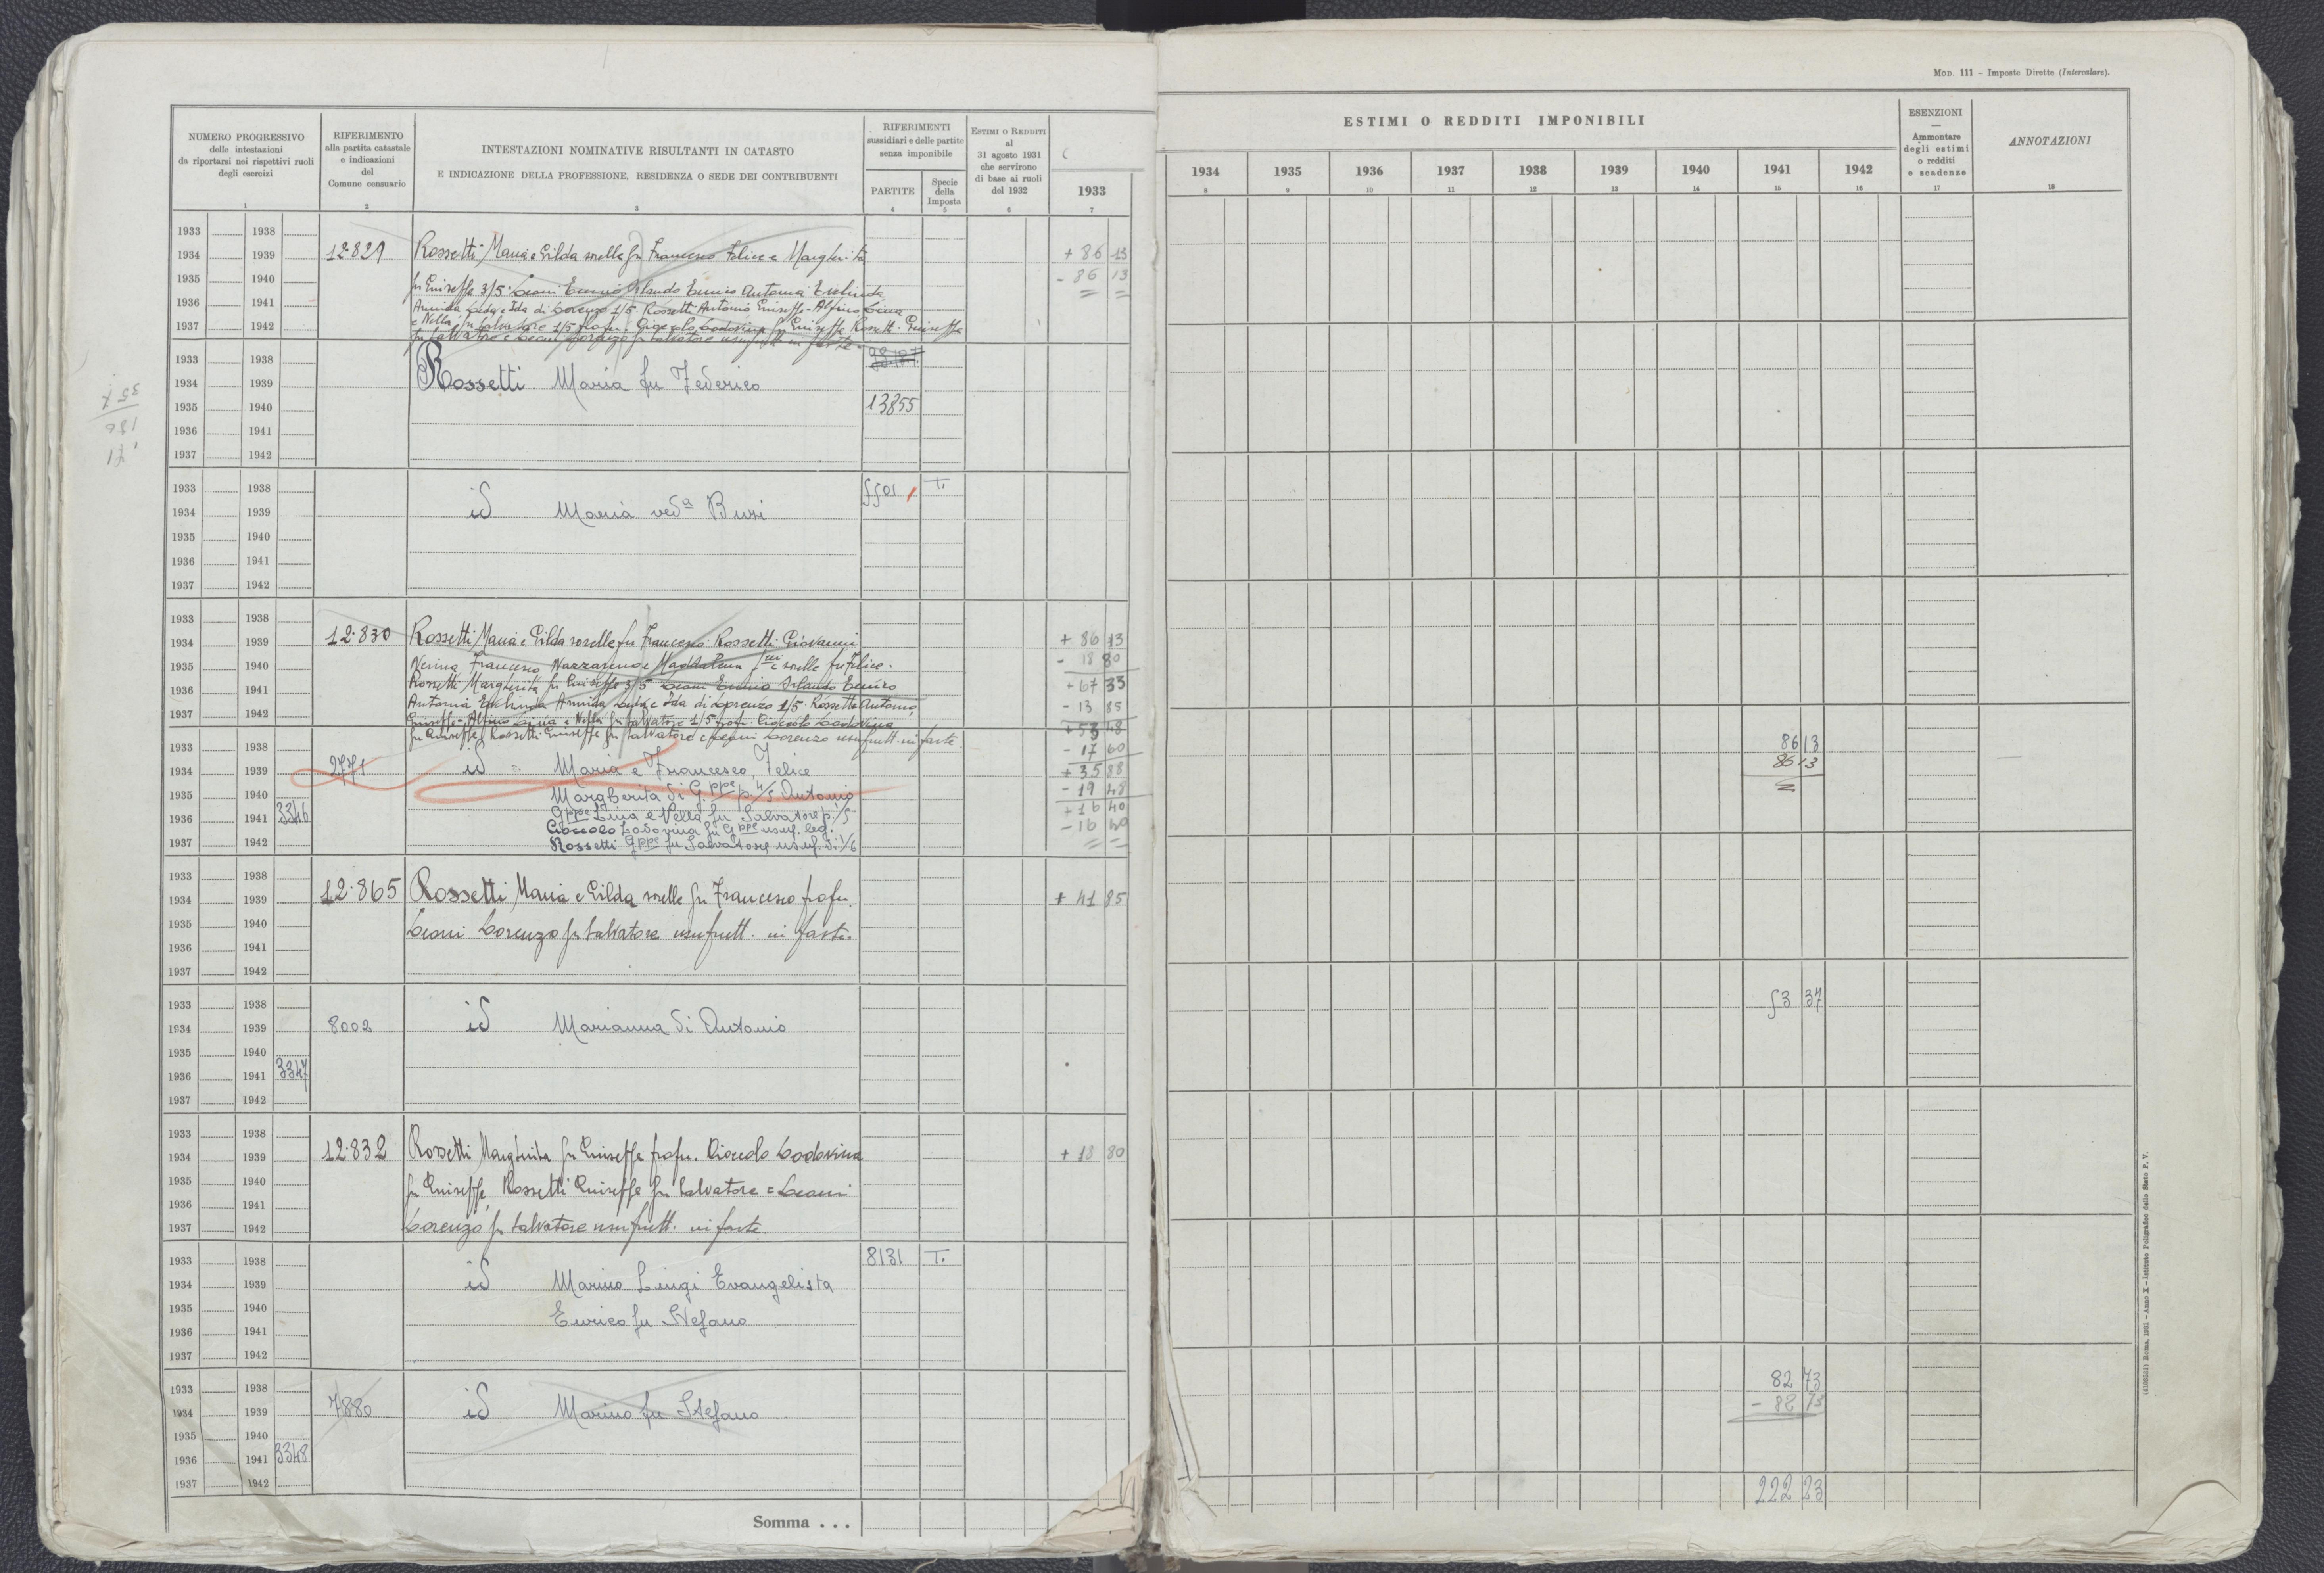 MOD. 111 – Imposte Dirette (Intercalare).
NUMERO PROGRESSIVO
delle intestazioni
da riportarsi nei rispettivi ruoli
degli esercizi
1
RIFERIMENTO
alla partita catastale
e indicazioni
del
Comune censuario
2
INTESTAZIONI NOMINATIVE RISULTANTI IN CATASTO
E INDICAZIONE DELLA PROFESSIONE, RESIDENZA O SEDE DEI CONTRIBUENTI
3
RIFERIMENTI
sussidiari e delle partite
senza imponibile
PARTITE
4
Specie
della
Imposta
5
ESTIMI O REDDITI
al
31 agosto 1931
che servirono
di base ai ruoli
del 1932
6
1933
7
ESTIMI O REDDITI IMPONIBILI
1934 1935 1936 1937 1938 1939 1940 1941 1942
8 9 10 11 12 13 14 15 16
ESENZIONI
Ammontare
degli estimi
o redditi
e scadenze
17
ANNOTAZIONI
18
1933 1938
1934 1939 12.829 Rossetti Maria e Gilda sorelle fu Francesco Felice e Margherita + 86 13
1935 1940 fu Giuseppe 3/5 Leoni Ennio Orlando Enrico Antonia Erelinda - 86 13
1936 1941 Armida Leda e Ida di Lorenzo 1/5 Rossetti Antonio Giuseppe - Alfino Lina
1937 1942 e Nella fu Salvatore 1/5 propr. Cioccolo Lodovina fu Giuseppe Rossetti Giuseppe
fu Salvatore e Leoni Lorenzo fu Salvatore usufrutt in parte
1933 1938
1934 1939 Rossetti Maria fu Federico
1935 1940 13855
1936 1941
1937 1942
1933 1938 5501 T.
1934 1939 id Maria ved.a Busi
1935 1940
1936 1941
1937 1942
1933 1938
1934 1939 12.830 Rossetti Maria e Gilda sorelle fu Francesco - Rossetti Giovanni + 86 13
1935 1940 Nerina Francesco Nazzareno e Maddalena f.lli e sorelle fu Felice - - 18 80
1936 1941 Rossetti Margherita fu Giuseppe 3/5 Leoni Ennio Orlando Enrico + 67 33
1937 1942 Antonia Erelinda Armida Leda e Ida di Lorenzo 1/5 - Rossetti Antonio, - 13 85
Giuseppe - Alfino Lina e Nella fu Salvatore 1/5 propr. Cioccolo Lodovina + 53 48
fu Giuseppe, Rossetti Giuseppe fu Salvatore e Leoni Lorenzo usufrutt. in parte
1933 1938 - 17 60 86 13
1934 1939 2771 id Maria e Francesco, Felice + 35 88 86 13
1935 1940 Margherita di G.ppe p. 4/5 Antonio - 19 48
1936 1941 3346 Gppe Lina e Nella fu Salvatore p. 1/5 + 16 40
Cioccolo Lodovina fu Gppe usuf. leg. - 16 40
1937 1942 Rossetti Gppe fu Salvatore usuf. di 1/6
1933 1938
1934 1939 12.865 Rossetti Maria e Gilda sorelle fu Francesco propr. + 41 85
1935 1940 Leoni Lorenzo fu Salvatore usufrutt. in parte
1936 1941
1937 1942
1933 1938 53 37
1934 1939 8002 id Marianna di Antonio
1935 1940
1936 1941 3347
1937 1942
1933 1938
1934 1939 12.832 Rossetti Margherita fu Giuseppe propr. Cioccolo Lodovina + 18 80
1935 1940 fu Giuseppe, Rossetti Giuseppe fu Salvatore e Leoni
1936 1941
1937 1942 Lorenzo fu Salvatore usufrutt. in parte
1933 1938 8131 T.
1934 1939 id Marino Luigi Evangelista
1935 1940 Enrico fu Stefano
1936 1941
1937 1942
1933 1938 82 73
1934 1939 7880 id Marino fu Stefano - 82 73
1935 1940
1936 1941 3348
1937 1942 222 23
Somma . . .
357
186
171
Roma, 1931 – Anno X – Istituto Poligrafico dello Stato P. V.